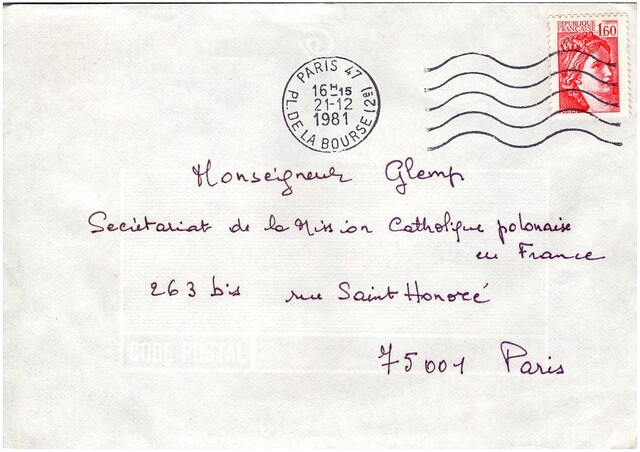 RÉPUBLIQUE
FRANÇAISE
1,60
PARIS 47
16H15
21-12
1981
PL. DE LA BOURSE (2E)
Monseigneur Glemp
Secrétariat de la Mission Catholique polonaise
en France
263 bis rue Saint Honoré
CODE POSTAL
75001 Paris